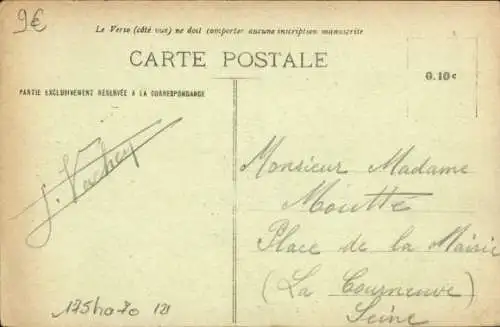 9€
Le Verso (côté vue) ne doit comporter aucune inscription manuscrite
CARTE POSTALE
0.10c
PARTIE EXCLUSIVEMENT RÉSERVÉE A LA CORRESPONDANCE
J. Vachey
Monsieur Madame
Moutté
Place de la Mairie
(La Courneuve)
Seine
175ho70 121